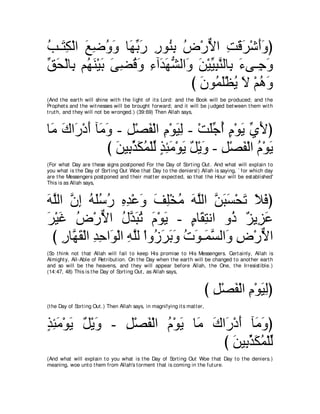 (وَأَشْرَقَتِ الْأَرْضُ بِنُورِ رَبِّهَا وَوُضِعَ الْكِتَابُ
وَجِيءَ بِالنَّبِيِّينَ وَالشُّهَدَاءِ وَقُضِيَ بَيْنَهُم بِالْحَقِّ
وَهُمْ لَا يُظْلَمُونَ )
(And the earth will shine with the light of its Lord: and the Book will be produced; and the
Prophets and the witnesses will be brought forward; and it will be judged between them with
truth, and they will not be wronged.) (39:69) Then Allah says,
(لِأَيِّ يَوْمٍ أُجِّلَتْ - لِيَوْمِ الْفَصْلِ - وَمَآ أَدْرَاكَ مَا
يَوْمُ الْفَصْلِ - وَيْلٌ يَوْمَئِذٍ لِّلْمُكَذِّبِينَ )
(For what Day are these signs postponed For the Day of Sorting Out. And what will explain to
you what is the Day of Sorting Out Woe that Day to the deniers!) Allah is saying, `for which day
are the Messengers postponed and their matter expected, so that the Hour will be established'
This is as Allah says,
(فَلَا تَحْسَبَنَّ اللَّهَ مُخْلِفَ وَعْدِهِ رُسُلَهُ إِنَّ اللَّهَ
عَزِيزٌ ذُو انْتِقَامٍ - يَوْمَ تُبَدَّلُ الْأَرْضُ غَيْرَ
الْأَرْضِ وَالسَّمَوَتُ وَبَرَزُواْ لِلَّهِ الْوَاحِدِ الْقَهَّارِ )
(So think not that Allah will fail to keep His promise to His Messengers. Certainly, Allah is
Almighty, All-Able of Retribution. On the Day when the earth will be changed to another earth
and so will be the heavens, and they will appear before Allah, the One, the Irresistible.)
(14:47, 48) This is the Day of Sorting Out, as Allah says,
(لِيَوْمِ الْفَصْلِ )
(the Day of Sorting Out.) Then Allah says, in magnifying its matter,
(وَمَآ أَدْرَاكَ مَا يَوْمُ الْفَصْلِ - وَيْلٌ يَوْمَئِذٍ
لِّلْمُكَذِّبِينَ )
(And what will explain to you what is the Day of Sorting Out Woe that Day to the deniers.)
meaning, woe unto them from Allah's torment that is coming in the future.